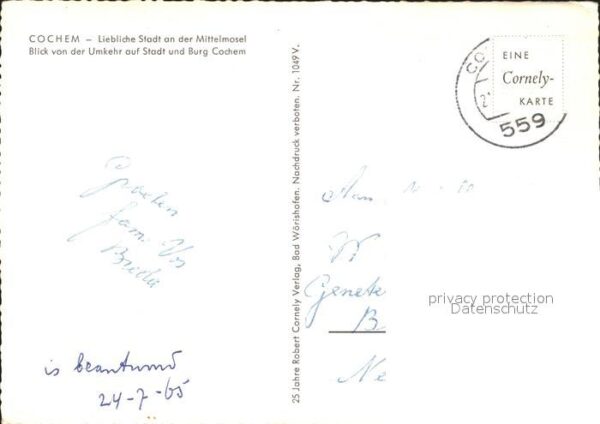 COCHEM – Liebliche Stadt an der Mittelmosel
Blick von der Umkehr auf Stadt und Burg Cochem
25 Jahre Robert Cornely Verlag, Bad Wörishofen. Nachdruck verboten. Nr. 1049 V.
EINE
Cornely-
KARTE
CO
2
559
Groeten
fam. Vos
Breda
is beantwoord
24-7-65
Aan
Genete
B
Ne
privacy protection
Datenschutz